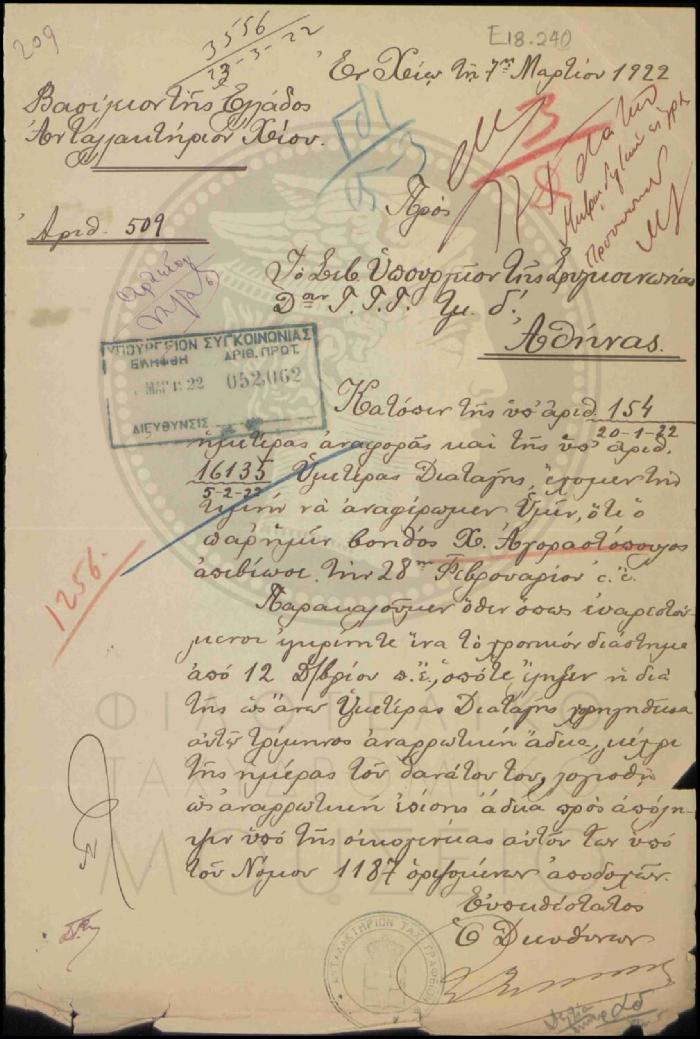 209
3556
23-3-22
Ε18.240
Ἐν Χίῳ τῇ 7ῃ Μαρτίου 1922
Βασίλειον τῆς Ἑλλάδος
Ἀνταλλακτήριον Χίου.
Πρὸς
Ἀριθ. 509
Τὸ Σεβ Ὑπουργεῖον τῆς Συγκοινωνίας
Δσιν Γ.Τ.Τ. Τμ. δ'.
Ἀθήνας.
ΥΠΟΥΡΓΕΙΟΝ ΣΥΓΚΟΙΝΩΝΙΑΣ
ΕΛΗΦΘΗ ΑΡΙΘ. ΠΡΩΤ.
ΜΑΡ 22 052,062
ΔΙΕΥΘΥΝΣΙΣ
Κατόπιν τῆς ὑπ' ἀριθ. 154
20-1-22
ἡμετέρας ἀναφορᾶς καὶ τῆς ὑπ' ἀριθ.
16135 Ὑμετέρας Διαταγῆς, ἔχομεν τὴν
5-2-22
τιμὴν νὰ ἀναφέρωμεν Ὑμῖν, ὅτι ὁ
παρ' ἡμῖν βοηθὸς Χ. Ἀγοραστόπουλος
ἀπεβίωσε τὴν 28ην Φεβρουαρίου ἐ.ἔ.
1256.
Παρακαλοῦμεν ὅθεν ὅπως εὐαρεστού-
μενοι ἐγκρίνητε ἵνα τὸ χρονικὸν διάστημα
ἀπὸ 12 Δ/βρίου π.ἔ., ὁπότε ἔληξεν ἡ διὰ
τῆς ὡς ἄνω Ὑμετέρας Διαταγῆς χορηγηθεῖσα
αὐτῷ τρίμηνος ἀναρρωτικὴ ἄδεια, μέχρι
τῆς ἡμέρας τοῦ θανάτου του, λογισθῇ
ὡς ἀναρρωτικὴ ἐπίσης ἄδεια πρὸς ἀπόλη-
ψιν ὑπὸ τῆς οἰκογενείας αὐτοῦ τῶν ὑπὸ
τοῦ Νόμου 1187 ὁριζομένων ἀποδοχῶν.
Εὐπειθέστατος
Ὁ Διευθύνων
ΦΙΛΟΤΕΛΙΚΟ
ΤΑΧΥΔΡΟΜΙΚΟ
ΜΟΥΣΕΙΟ